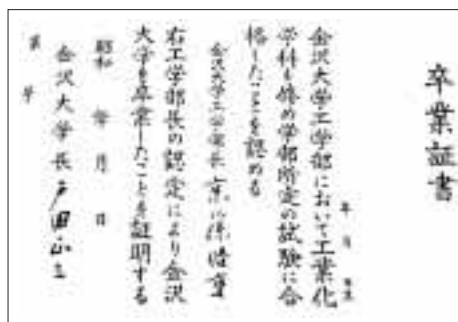 卒業証書
年 月 日生
金沢大学工学部において工業化
学科を修め学部所定の試験に合
格したことを認める
金沢大学工学部長
右工学部長の認定により金沢
大学を卒業したことを証明する
昭和 年 月 日
金沢大学長 戸田正三
第 号